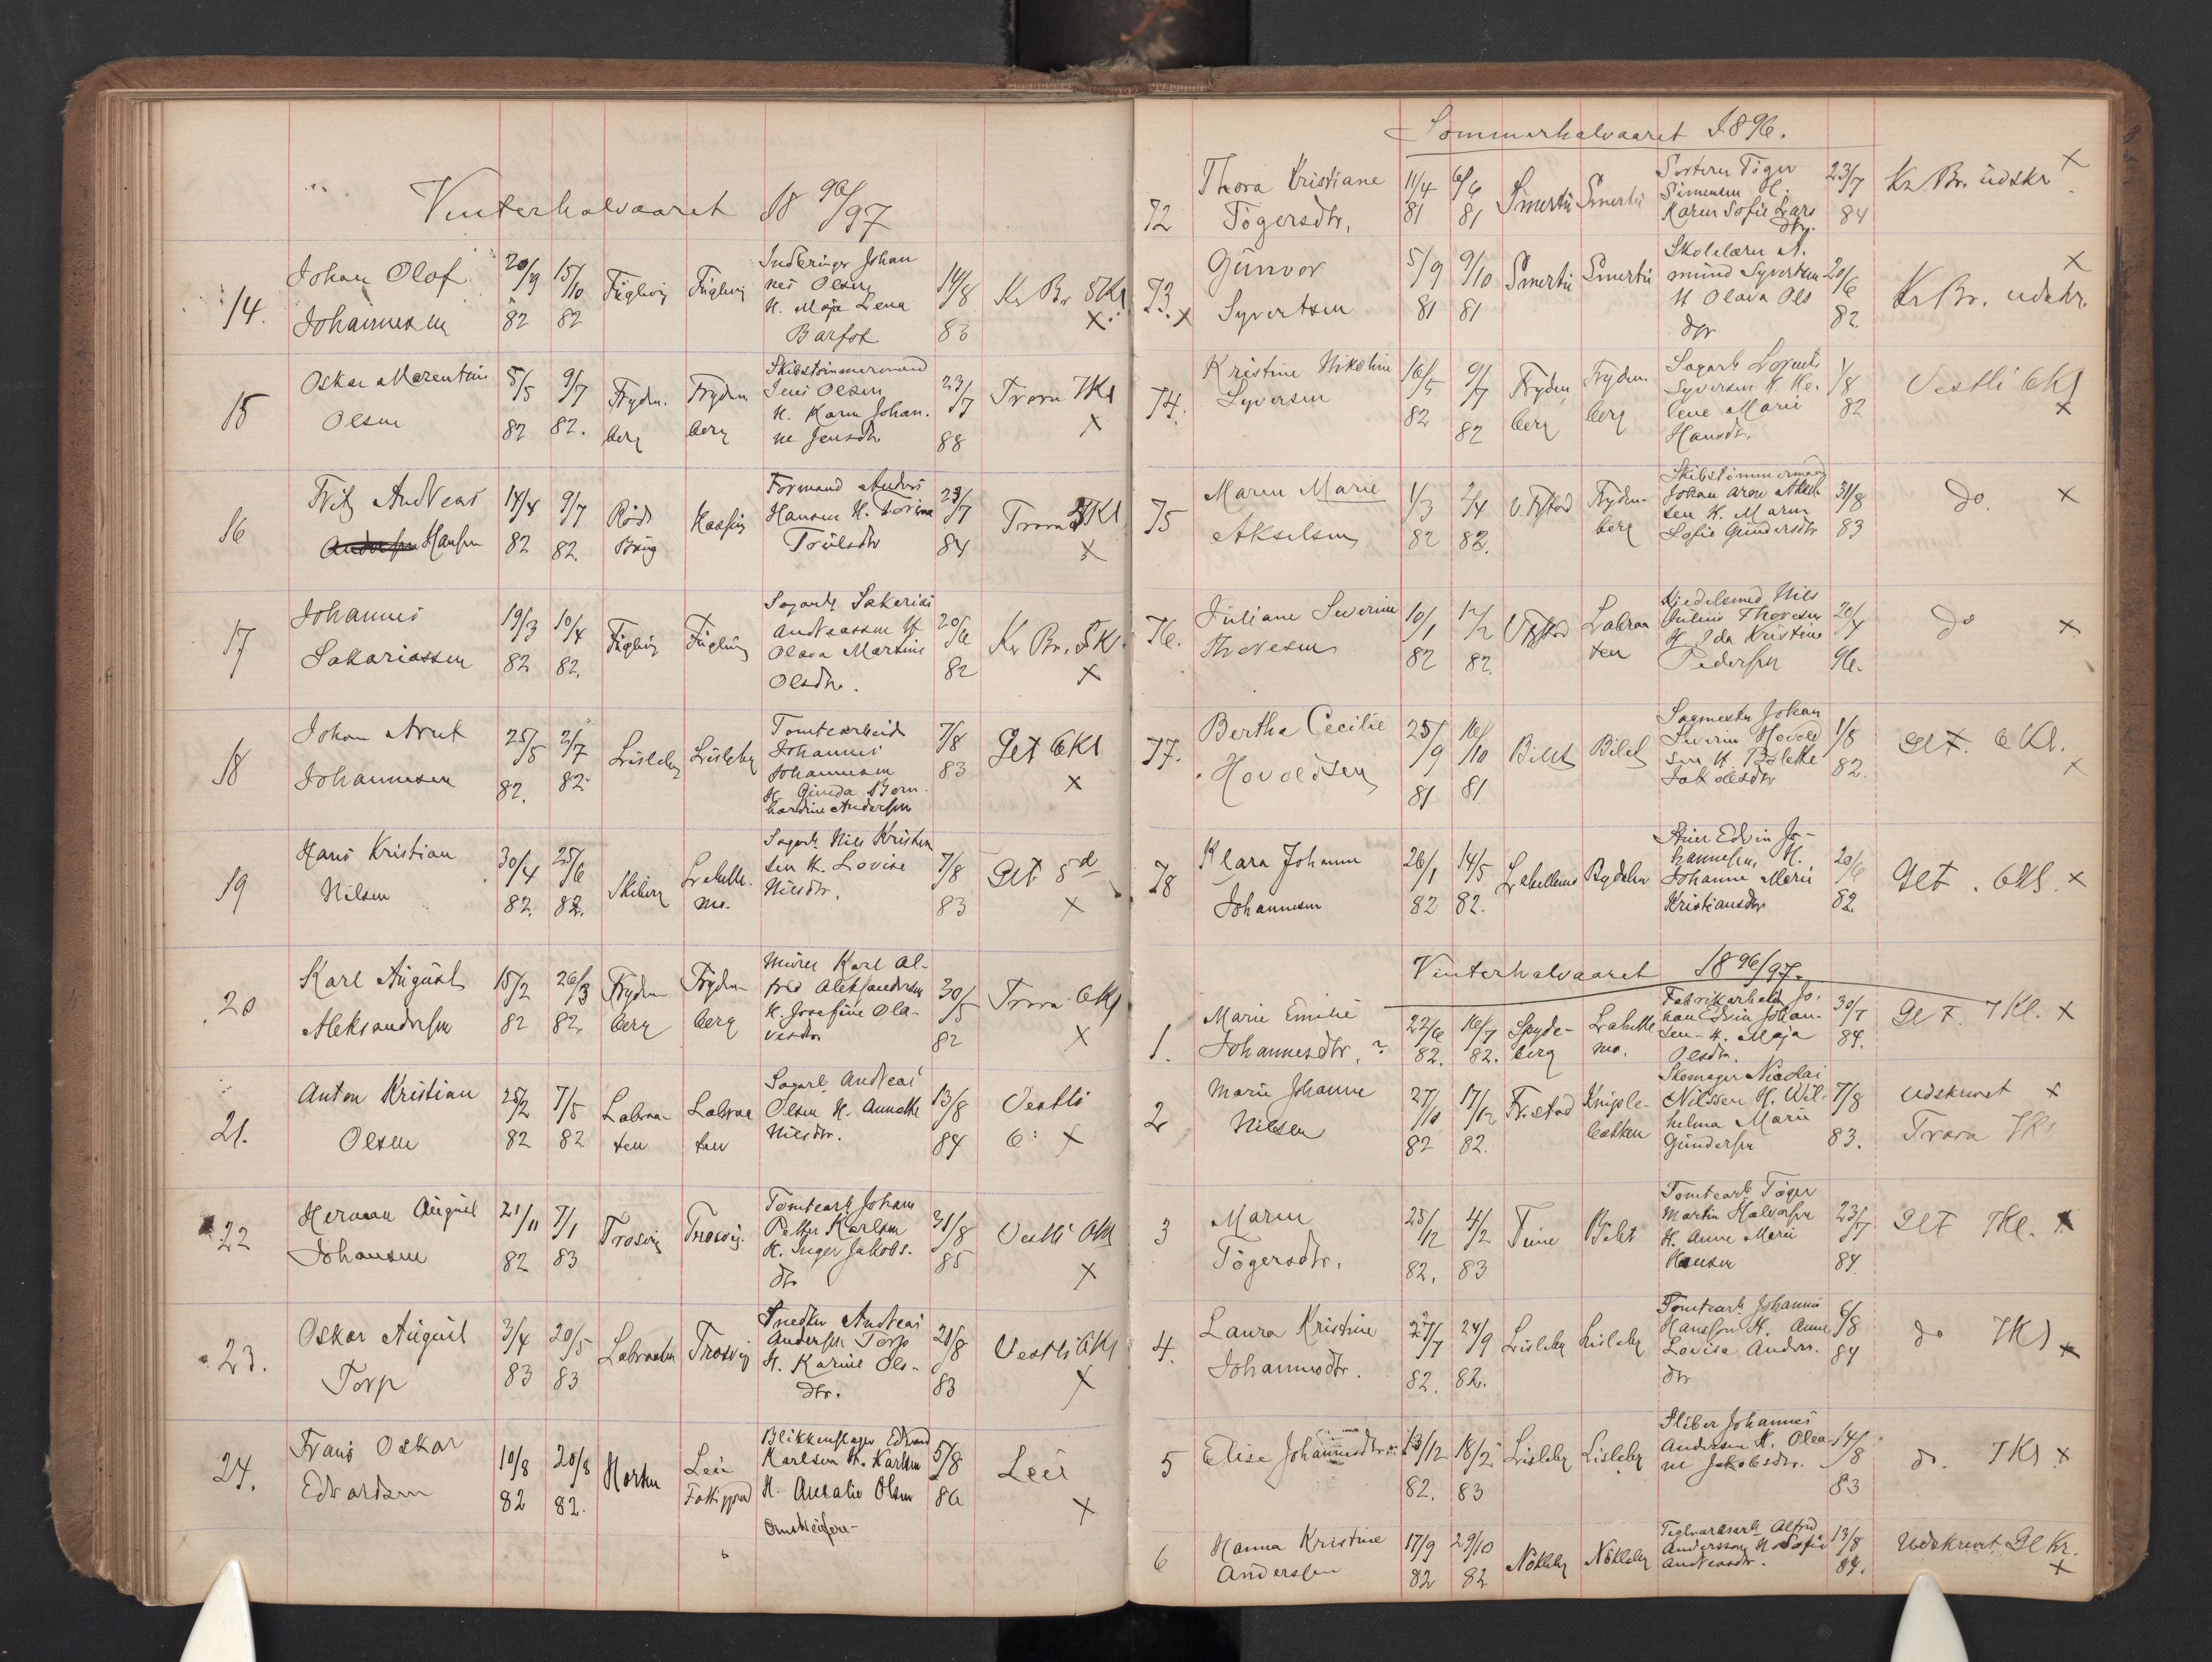 Vinterhalvaaret 18 96/97
14. Johan Olof Johannesen 20/9 82 15/10 82 Fuglevig Fuglevig
Johannes Olsen H. Maja Lena Barfot 14/8 83 Kr Br. 5Kl ×
15 Oskar Marentius Olsen 5/5 82 9/7 82. Frydenberg Frydenberg
Skibstømmermand Jens Olsen H. Karen Johanne Jensdtr 23/7 88 Trara 7Kl ×
16 Fritz Andreas Hansen 14/4 82 9/7 82. Røds Brug
Formand Anders Hansen H. 23/7 84 Trara Kl ×
17 Johannes Sakariassen 19/3 82 10/4 82. Fuglevig Fuglevig
Sagarb. Sakarias Andreassen H Olava Martine Olsdtr. 20/6 82 Kr Br. 5Kl. ×
18 Johan Arnt Johannesen 25/5 82. 2/7 82. Lisleby Lisleby
Tomtearbeid Johannes Johannesen H. Gunda Bernhardine Andersen 7/8 83 Glt 6Kl ×
19 Hans Kristian Nilsen 30/4 82. 25/6 82. Skiberg Lahellemo.
Sagarb. Nils Kristensen H. Lovise Nilsdtr. 7/8 83 Glt 5 ×
20 Karl August Aleksandersen 15/2 82 26/3 82. Frydenberg Frydenberg
Murer Karl Alfred Aleksandersen H. Josefine Olavesdtr 30/5 82 Trara 6Kl ×
21. Anton Kristian Olsen 25/2 82 7/5 82 Labraaten Labraaten
Sagarb Andreas Olsen H. Annette Nilsdtr. 13/8 84 Vestli 6: ×
22 Herman August Johansen 21/11 82 7/1 83 Trosvig Trosvig.
Tomtearb Johan Petter Karlsen H. Inger Jakobsdtr 31/8 85 Vestli 6Kl ×
23. Oskar August Torp 3/4 83 20/5 83 Labraaten Trosvig
Snedker Andreas Andersen Torp H. Karine Olsdtr. 21/8 83 Vestli 6Kl ×
24. Frans Oskar Edvardsen 10/8 82 20/8 82. Horten Leie
Blikkenslager Edvard Karlsen H. Karlsen H. Olsen 5/8 86 Leie ×
Sommerhalvaaret 1896.
72 Thora Kristiane Tögersdtr. 11/4 81 6/6 81 Smertu Smertu
Sorterer Töger Simensen H. Karen Sofie Larsdtr. 23/7 84 Kr Br. udskr. ×
73. × Gunvor Syvertsen 5/9 81 9/10 81 Smertu Smertu
Skolelærer Amund Syvertsen H Olava Olsdtr 20/6 82. Kr Br. udskr. ×
74. Kristine Nikoline Syversen 16/5 82 9/7 82 Frydenberg Frydenberg
Sagarb Syversen H. Helene Marie Hansdtr. 1/8 82 Vestli 6Kl ×
75 Maren Marie Akselsen 1/3 82 2/4 82. Frydenberg
Skibstömmermand Johan Akselsen H. Maren Sofie Gundersdtr 31/8 83 do. ×
76. Juliane Severine Thoresen 10/1 82 12/2 82. Labraaten
Kjedelsmed Nils Julius Thoresen H. Ida Kristine Pedersen 20/4 96. do ×
77. Bertha Cecilie Hovoldsen 25/9 81 16/10 81 Bilet Bilet
Sagmester Johan Severin Hovoldsen H. Bolette Jakobsdtr 1/8 82. Glt. 6Kl. ×
78 Klara Johanne Johannesen 26/1 82 14/5 82. Lahellemo Rydehn
Edvin Johannesen, H. Johanne Marie Kristiansdtr 20/6 82. Glt. 6Kl. ×
Vinterhalvaaret 1896/97.
1. Marie Emilie Johannesdtr. ? 22/6 82. 16/7 82. Spydeberg Lahellemo.
Fabrikarbeid Johan Edvin Johansen - H. Maja Olsdtr. 30/7 84. Glt 7Kl. ×
2 Marie Johanne Nilsen 27/10 82 17/12 82. Fr.stad Kniplebakken
Skomager Nicolai Nilssen H. Wilhelma Marie Gundersen 7/8 83. Udskrevet × Trara 7Kl
3 Maren Tögersdtr. 25/12 82. 4/2 83 Tune Bilet
Tomtearb Töger Martin Halvorsen H. Anne Marie Hansen 23/7 84. Glt 7Kl. ×
4. Laura Kristine Johannesdtr. 27/7 82. 24/9 82. Lisleby Lisleby
Tomtearb. Johannes Hansen H. Anne Lovise Andersdtr 6/8 84 do 7Kl ×
5 Elise Johannesdtr 13/12 82. 18/2 83 Lisleby Lisleby
Sliber Johannes Andersen H. Oleane Jakobsdtr. 14/8 83 do. 7Kl ×
6 Hanna Kristine Andersen 17/9 82 29/10 82 Nökleby Nökleby
Teglværksarb Alfred Anderssen H. Sofie Andreasdtr. 13/8 84. Udskrevet Gl Kr. ×